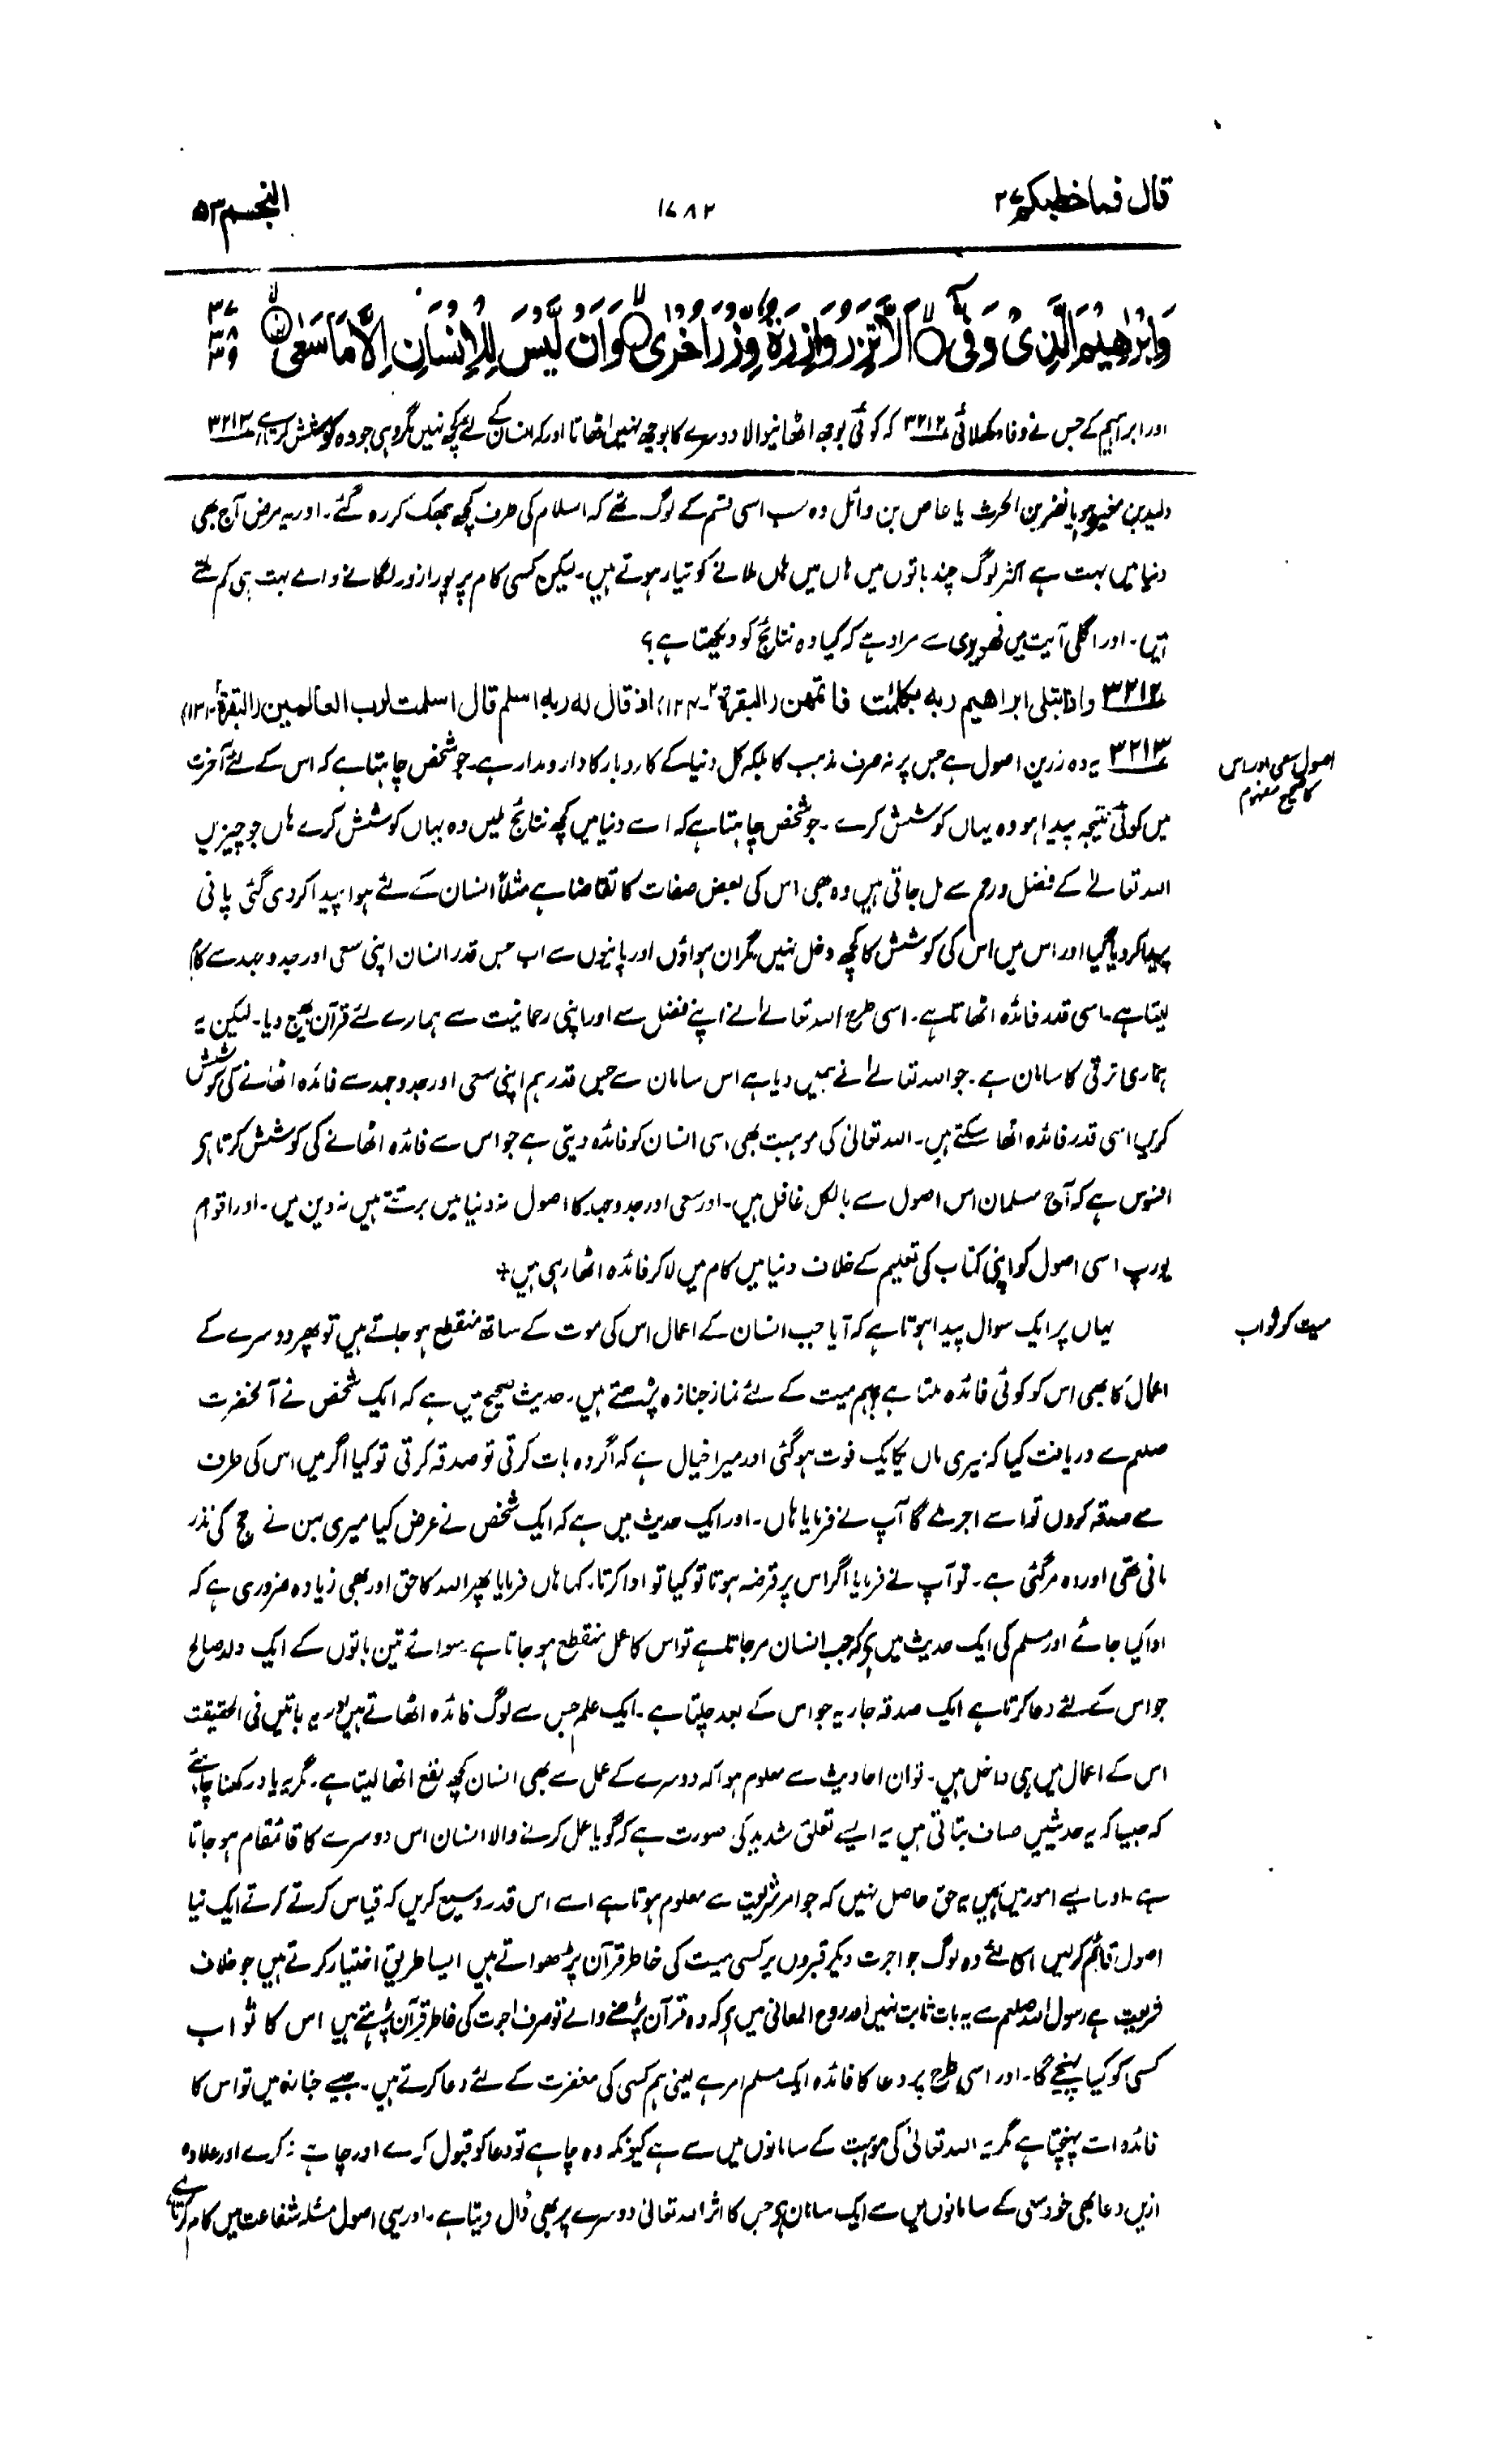 قال فما خطبکم ۲۷
۱۷۸۲
النجم ۵۳
وَاِبْرٰهِيْمَ الَّذِىْ وَفّٰىٓ ۙ اَلَّا تَزِرُ وَازِرَةٌ وِّزْرَ اُخْرٰى ۙ وَاَنْ لَّيْسَ لِلْاِنْسَانِ اِلَّا مَا سَعٰى ۙ
۳۷
۳۸
۳۹
اور ابراہیم کے جس نے وفا دکھلائی ۳۲۱۲ کہ کوئی بوجھ اٹھانیوالا دوسرے کا بوجھ نہیں اٹھاتا اور کہ انسان کے لئے کچھ نہیں مگر وہی جو وہ کوشش کرے ۳۲۱۳
ولید بن مغیرہ ہو یا نضر بن الحرث یا عاص بن وائل وہ سب اسی قسم کے لوگ تھے کہ اسلام کی طرف کچھ جھک کر رہ گئے۔ اور یہ مرض آج بھی
دنیا میں بہت ہے اکثر لوگ چند باتوں میں ہاں میں ہاں ملانے کو تیار ہوتے ہیں۔ لیکن کسی کام پر پورا زور لگانے والے بہت ہی کم ملتے
ہیں۔ اور اگلی آیت میں فھو یری سے مراد ہے کہ کیا وہ نتائج کو دیکھتا ہے؟
۳۲۱۲ واذ ابتلی ابراھیم ربه بکلمٰت فاتمھن (البقرة ۲-۱۲۴) اذ قال له ربه اسلم قال اسلمت لرب العالمین (البقرة ۲-۱۳۱)
۳۲۱۳ یہ وہ زرین اصول ہے جس پر نہ صرف مذہب کا بلکہ کل دنیا کے کاروبار کا دارومدار ہے۔ جو شخص چاہتا ہے کہ اس کے لئے آخرت
اصول سعی اور اس
کا صحیح مفہوم
میں کوئی نتیجہ پیدا ہو وہ یہاں کوشش کرے۔ جو شخص چاہتا ہے کہ اسے دنیا میں کچھ نتائج ملیں وہ یہاں کوشش کرے ہاں جو چیزیں
اللہ تعالےٰ کے فضل و رحم سے مل جاتی ہیں وہ بھی اس کی بعض صفات کا تقاضا ہے مثلاً انسان کے لئے ہوا پیدا کر دی گئی پانی
پیدا کر دیا گیا اور اس میں اس کی کوشش کا کچھ دخل نہیں مگر ان ہواؤں اور پانیوں سے اب جس قدر انسان اپنی سعی اور جدوجہد سے کام
لیتا ہے۔ اسی قدر فائدہ اٹھاتا ہے۔ اسی طرح اللہ تعالےٰ نے اپنے فضل سے اور اپنی رحمانیت سے ہمارے لئے قرآن بھیج دیا۔ لیکن یہ
ہماری ترقی کا سامان ہے۔ جو اللہ تعالےٰ نے ہمیں دیا ہے اس سامان سے جس قدر ہم اپنی سعی اور جدوجہد سے فائدہ اٹھانے کی کوشش
کریں اسی قدر فائدہ اٹھا سکتے ہیں۔ اللہ تعالیٰ کی موہبت بھی اسی انسان کو فائدہ دیتی ہے جو اس سے فائدہ اٹھانے کی کوشش کرتا ہو
افسوس ہے کہ آج مسلمان اس اصول سے بالکل غافل ہیں۔ اور سعی اور جدوجہد کا اصول نہ دنیا میں برتتے ہیں نہ دین میں۔ اور اقوام
یورپ اسی اصول کو اپنی کتاب کی تعلیم کے خلاف دنیا میں کام میں لا کر فائدہ اٹھا رہی ہیں+
یہاں پر ایک سوال پیدا ہوتا ہے کہ آیا جب انسان کے اعمال اس کی موت کے ساتھ منقطع ہو جاتے ہیں تو پھر دوسرے کے
میت کو ثواب
اعمال کا بھی اس کو کوئی فائدہ ملتا ہے؟ ہم میت کے لئے نماز جنازہ پڑھتے ہیں۔ حدیث صحیح میں ہے کہ ایک شخص نے آنحضرت
صلعم سے دریافت کیا کہ میری ماں یکایک فوت ہو گئی اور میرا خیال ہے کہ اگر وہ بات کرتی تو صدقہ کرتی تو کیا اگر میں اس کی طرف
سے صدقہ کروں تو اسے اجر ملے گا آپ نے فرمایا ہاں۔ اور ایک حدیث میں ہے کہ ایک شخص نے عرض کیا میری بہن نے حج کی نذر
مانی تھی اور وہ مر گئی ہے۔ تو آپ نے فرمایا اگر اس پر قرضہ ہوتا تو کیا تو ادا کرتا، کہا ہاں فرمایا پھر اللہ کا حق اور بھی زیادہ ضروری ہے کہ
ادا کیا جائے اور مسلم کی ایک حدیث میں ہے کہ جب انسان مر جاتا ہے تو اس کا عمل منقطع ہو جاتا ہے سوائے تین باتوں کے ایک ولد صالح
جو اس کے لئے دعا کرتا ہے ایک صدقہ جاریہ جو اس کے بعد چلتا ہے۔ ایک علم جس سے لوگ فائدہ اٹھاتے ہیں اور یہ باتیں فی الحقیقت
اس کے اعمال میں ہی داخل ہیں۔ تو ان احادیث سے معلوم ہوا کہ دوسرے کے عمل سے بھی انسان کچھ نفع اٹھا لیتا ہے۔ مگر یہ یاد رکھنا چاہئے
کہ جیسا کہ یہ حدیثیں صاف بتاتی ہیں یہ ایسے تعلق شدید کی صورت ہے کہ گویا عمل کرنے والا انسان اس دوسرے کا قائمقام ہو جاتا
ہے۔ اور ایسے امور میں ہمیں یہ حق حاصل نہیں کہ جو امر شریعت سے معلوم ہوتا ہے اسے اس قدر وسیع کریں کہ قیاس کرتے کرتے ایک نیا
اصول قائم کر لیں اس لئے وہ لوگ جو اجرت دیکر قبروں پر کسی میت کی خاطر قرآن پڑھواتے ہیں ایسا طریق اختیار کرتے ہیں جو خلاف
شریعت ہے رسول اللہ صلعم سے یہ بات ثابت نہیں اور روح المعانی میں ہے کہ وہ قرآن پڑھنے والے تو صرف اجرت کی خاطر قرآن پڑھتے ہیں اس کا ثواب
کسی کو کیا پہنچے گا۔ اور اسی طرح پر دعا کا فائدہ ایک مسلم امر ہے یعنی ہم کسی کی مغفرت کے لئے دعا کرتے ہیں۔ جیسے جنازہ میں تو اس کا
فائدہ اسے پہنچتا ہے مگر یہ اللہ تعالیٰ کی موہبت کے سامانوں میں سے ہے کیونکہ وہ چاہے تو دعا کو قبول کرے اور چاہے نہ کرے اور علاوہ
ازیں دعا بھی خود سعی کے سامانوں میں سے ایک سامان ہے جس کا اثر اللہ تعالیٰ دوسرے پر بھی ڈال دیتا ہے۔ اور یہی اصول مسئلہ شفاعت میں کام کرتا ہے